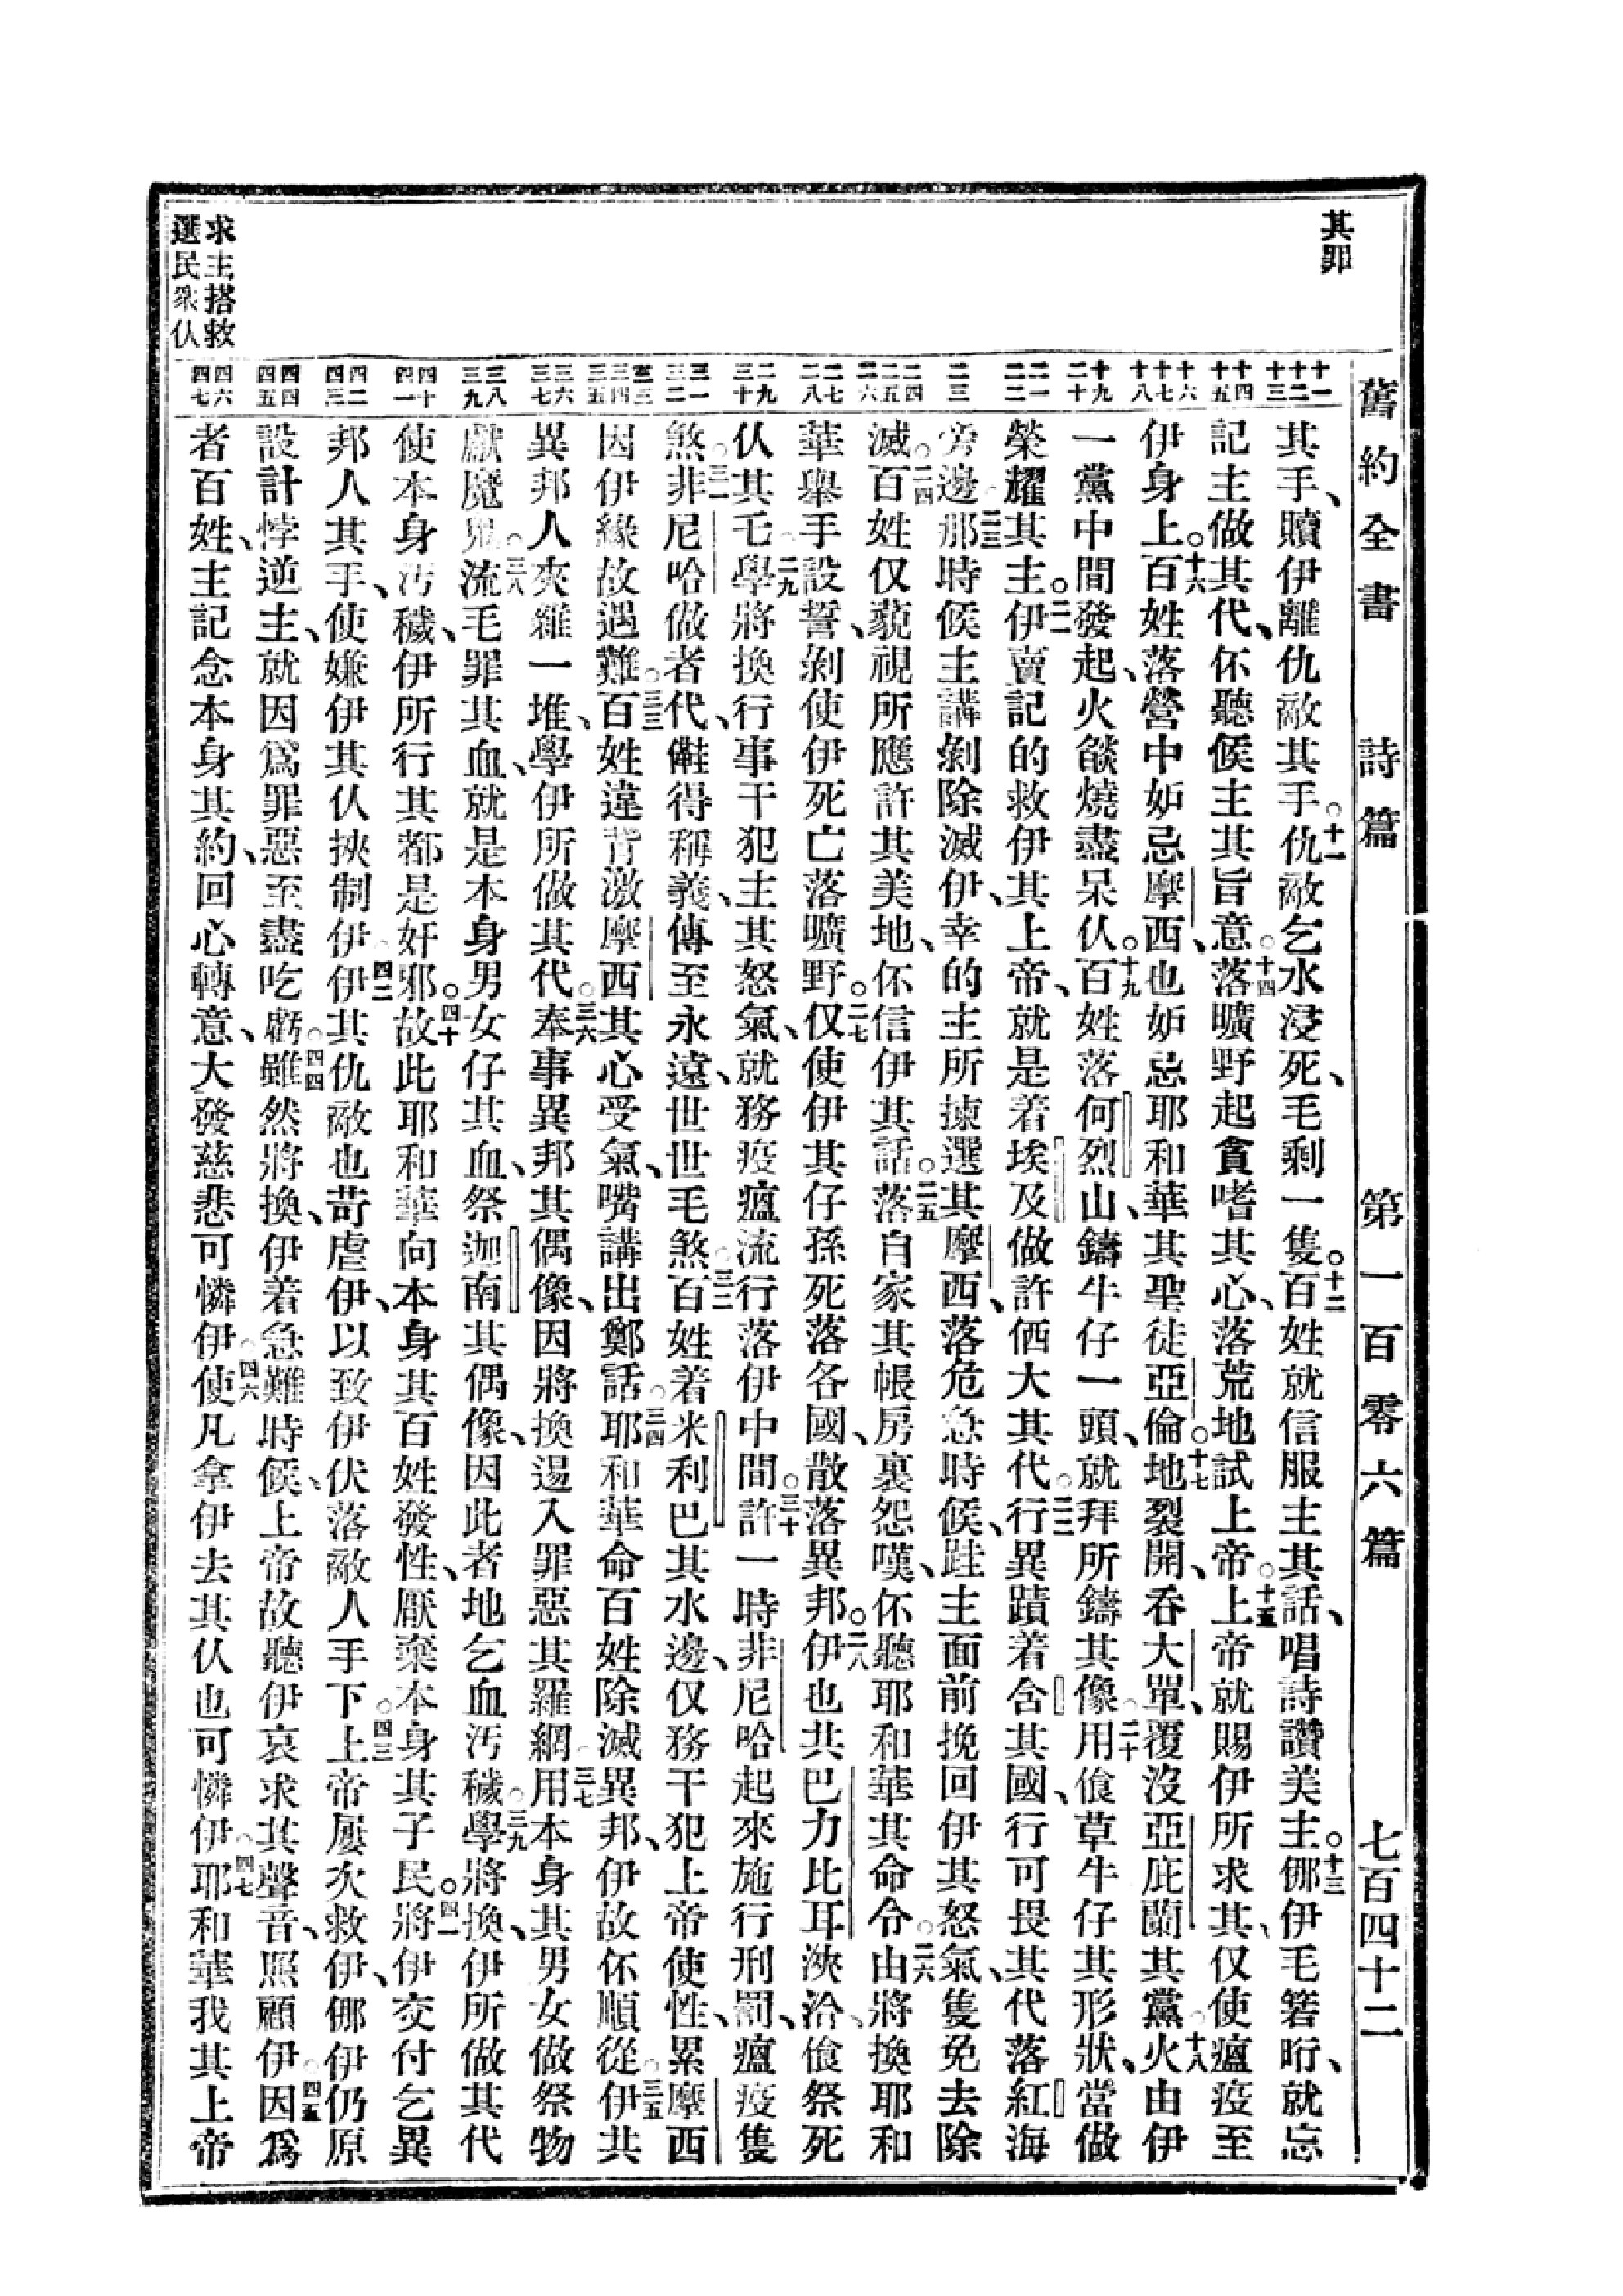 舊約全書　詩篇　第一百零六篇　七百四十二
其罪
求主搭救
選民衆仫
十一 十二 十三
十四 十五
十六 十七 十八
十九 二十
二一 二二
二三
二四 二五 二六
二七 二八
二九 三十
三一 三二
三三 三四 三五
三六 三七
三八 三九
四十 四一
四二 四三
四四 四五
四六 四七
其手、贖伊離仇敵其手。十一仇敵乞水浸死、毛剩一隻。十二百姓就信服主其話、唱詩讚美主。十三㑚伊毛箬𪠽、就忘
記主做其代、伓聽候主其旨意。十四落曠野起貪嗜其心、落荒地試上帝。十五上帝就賜伊所求其、仅使瘟疫至
伊身上。十六百姓、落營中妒忌摩西、也妒忌耶和華其聖徒亞倫。十七地裂開、吞大單、覆沒亞庇蘭其黨。十八火由伊
一黨中間發起、火燄燒盡呆仫。十九百姓落何烈山、鑄牛仔一頭、就拜所鑄其像。二十用飧草牛仔其形狀、當做
榮耀其主。二一伊賣記的救伊其上帝、就是着埃及做許㑚大其代。二二行異蹟着含其國、行可畏其代落紅海
旁邊。二三那時候主講剝除滅伊、幸的主所揀選其摩西、落危急時候、跬主面前挽回伊其怒氣、隻免去除
滅。二四百姓仅藐視所應許其美地、伓信伊其話。二五落自家其帳房裏怨嘆、伓聽耶和華其命令。二六由將換耶和
華舉手設誓、剝使伊死亡落曠野。二七仅使伊其仔孫死落各國、散落異邦。二八伊也共巴力比耳浹洽、飧祭死
仫其乇。二九學將換行事干犯主其怒氣、就務疫瘟流行落伊中間。三十許一時非尼哈起來施行刑罰、瘟疫隻
煞。三一非尼哈做者代、䧢得稱義、傳至永遠、世世毛煞。三二百姓着米利巴其水邊、仅務干犯上帝使性、累摩西
因伊緣故遇難。三三百姓違背激摩西其心受氣、嘴講出鄭話。三四耶和華命百姓除滅異邦、伊故伓順從。三五伊共
異邦人夾雜一堆、學伊所做其代。三六奉事異邦其偶像、因將換逿入罪惡其羅網。三七用本身其男女做祭物
獻魔鬼。三八流毛罪其血、就是本身男女仔其血、祭迦南其偶像、因此者地乞血汚穢。三九學將換、伊所做其代
使本身汚穢、伊所行其都是奸邪。四十故此耶和華向本身其百姓發性、厭棄本身其子民。四一將伊交付乞異
邦人其手、使嫌伊其仫挾制伊。四二伊其仇敵也苛虐伊、以致伊伏落敵人手下。四三上帝屢次救伊、㑚伊仍原
設計悖逆主、就因爲罪惡至盡吃虧。四四雖然將換、伊着急難時候、上帝故聽伊哀求其聲音、照顧伊。四五因爲
者百姓、主記念本身其約、回心轉意、大發慈悲可憐伊。四六使凡拿伊去其仫也可憐伊。四七耶和華我其上帝